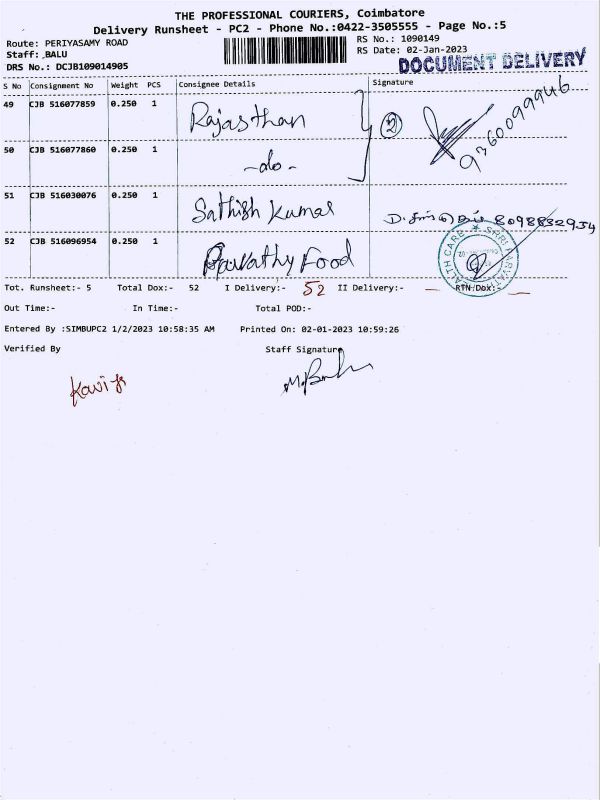 THE PROFESSIONAL COURIERS, Coimbatore
Delivery Runsheet - PC2 - Phone No.:0422-3505555 - Page No.:5
Route: PERIYASAMY ROAD RS No.: 1090149
Staff: .BALU RS Date: 02-Jan-2023
DRS No.: DCJB109014905 DOCUMENT DELIVERY
S No Consignment No Weight PCS Consignee Details Signature
49 CJB 516077859 0.250 1 Rajasthan 2 9360099946
50 CJB 516077860 0.250 1 -do-
51 CJB 516030076 0.250 1 Sathish Kumar 8098832934
52 CJB 516096954 0.250 1 Parvathy Food
Tot. Runsheet:- 5 Total Dox:- 52 I Delivery:- 52 II Delivery:- — RTN Dox:- —
Out Time:- In Time:- Total POD:-
Entered By :SIMBUPC2 1/2/2023 10:58:35 AM Printed On: 02-01-2023 10:59:26
Verified By Staff Signature